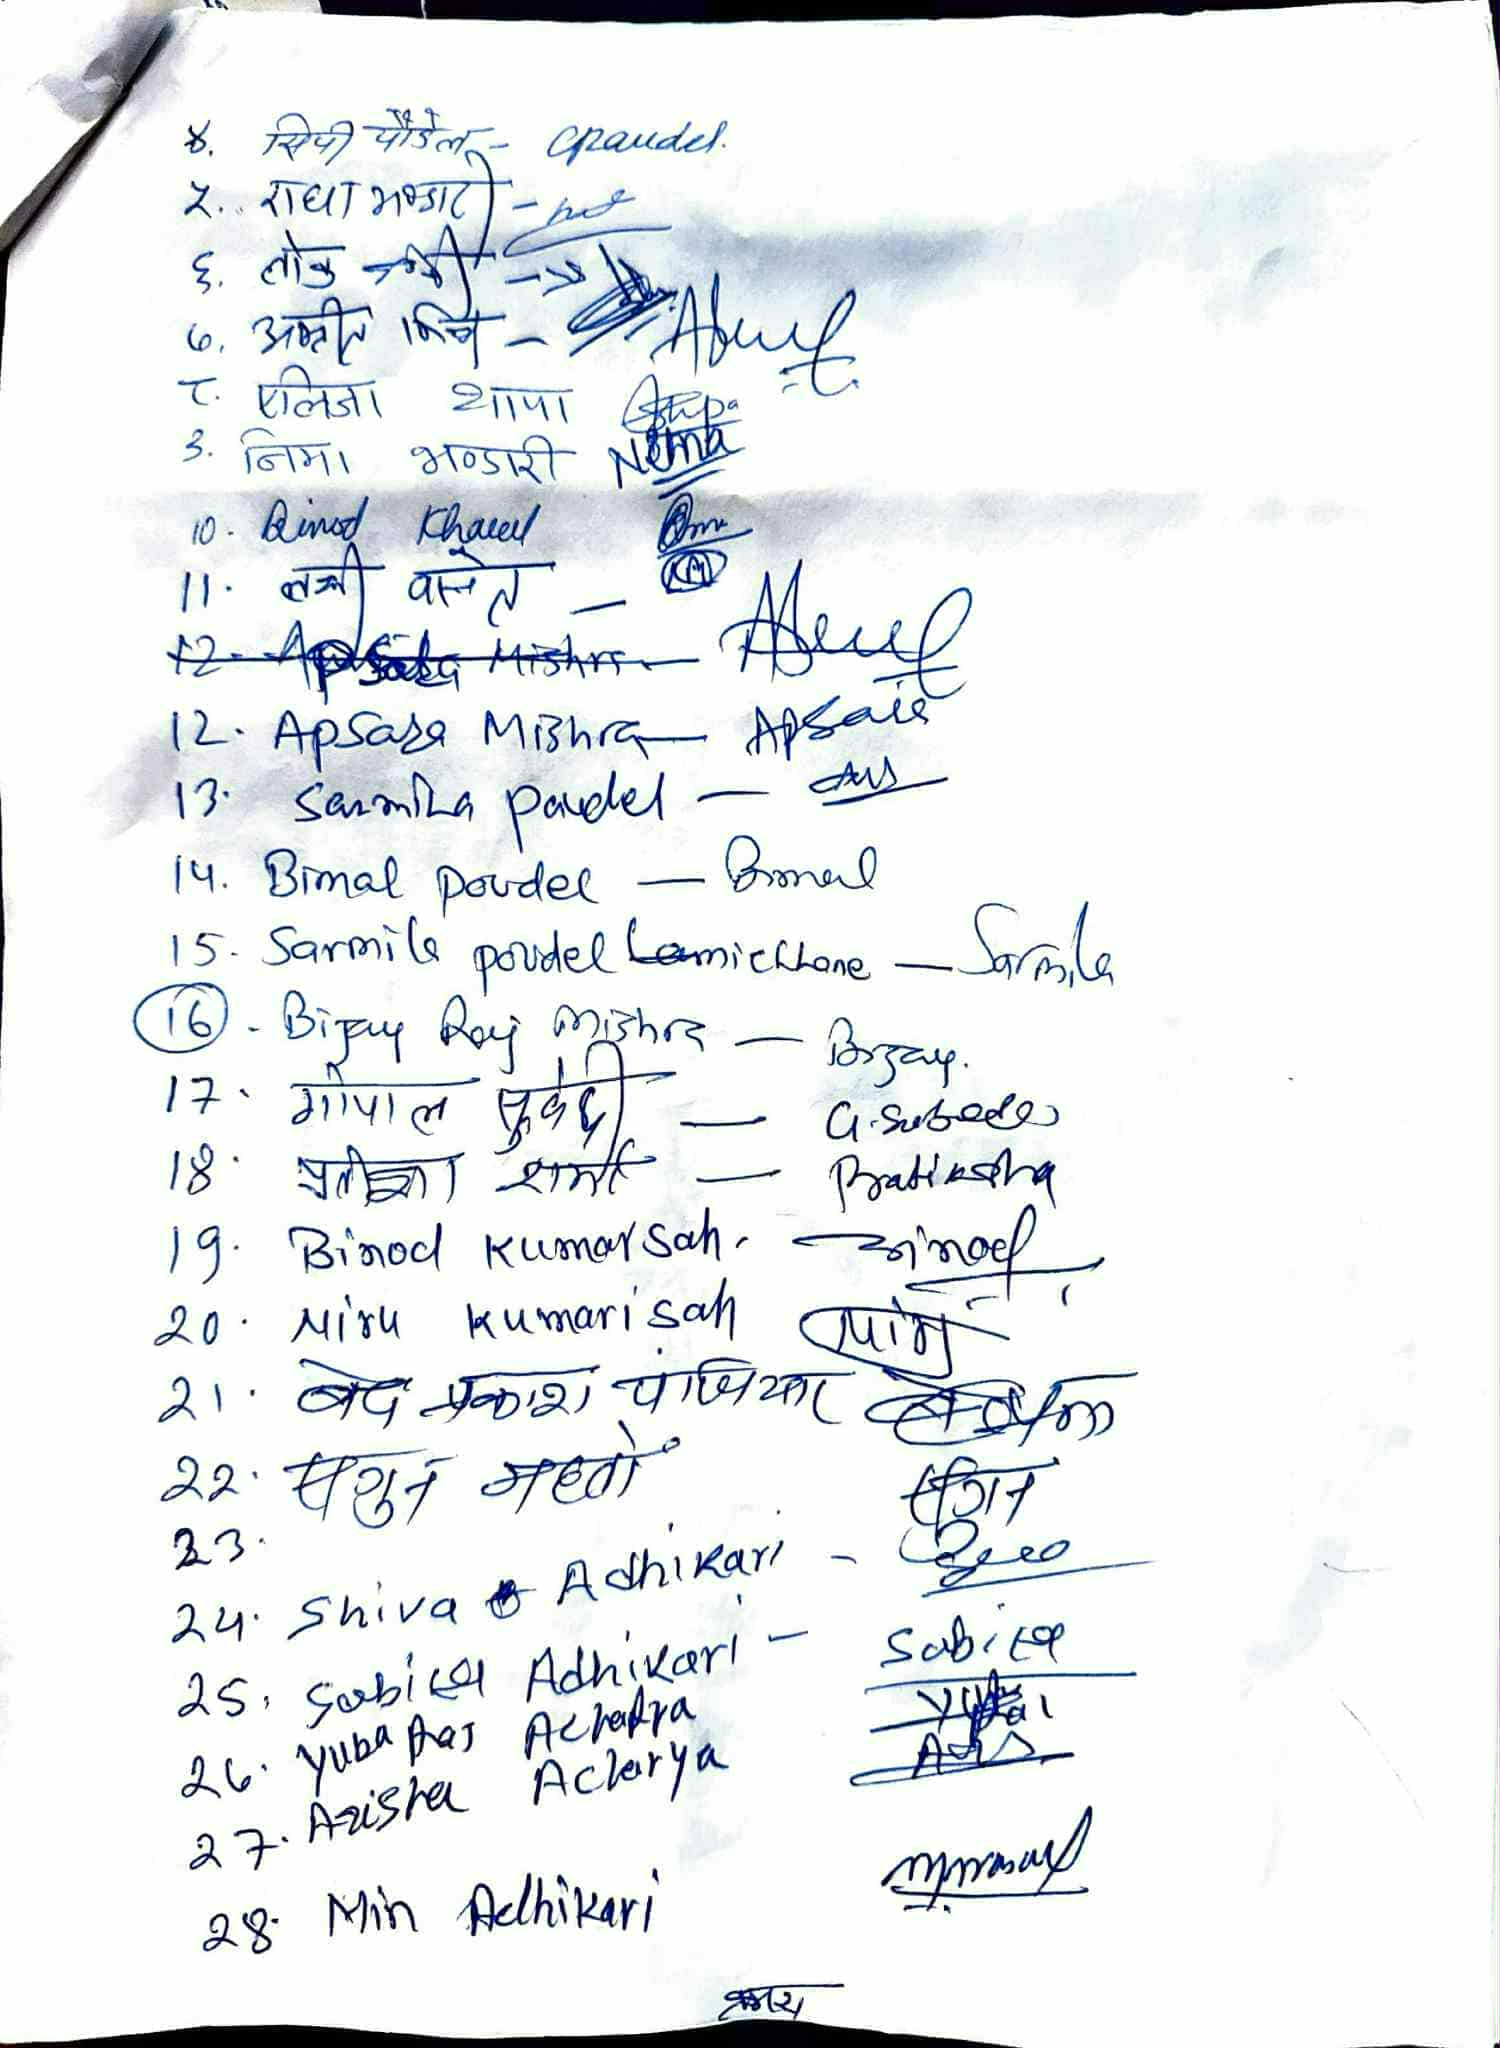 ४. सिपी पौडेल - CPaudel.
५. राधा भण्डारी -
६. लोक
७. अमृत
८. एलिजा थापा Thapa
९. निमा भण्डारी Nema
10. Binod Khanal
11. लक्ष्मी
12. Apsara Mishra
12. Apsara Mishra — Apsara
13. Sarmila paudel —
14. Bimal poudel — Bimal
15. Sarmila poudel Lamichhane — Sarmila
16. Bijay Raj Mishra — Bijay.
17. गोपाल सुवेदी — G.Subedi
18. प्रतीक्षा शर्मा — Pratiksha
19. Binod Kumar Sah. Binod
20. Niru Kumari Sah
21. बेद प्रकाश पंजियार
22. सगुन महतो सगुन
23.
24. Shiva Adhikari -
25. Sabita Adhikari - Sabita
26. Yuba Raj Acharya
27. Arisha Acharya
28. Min Adhikari
क्रमश